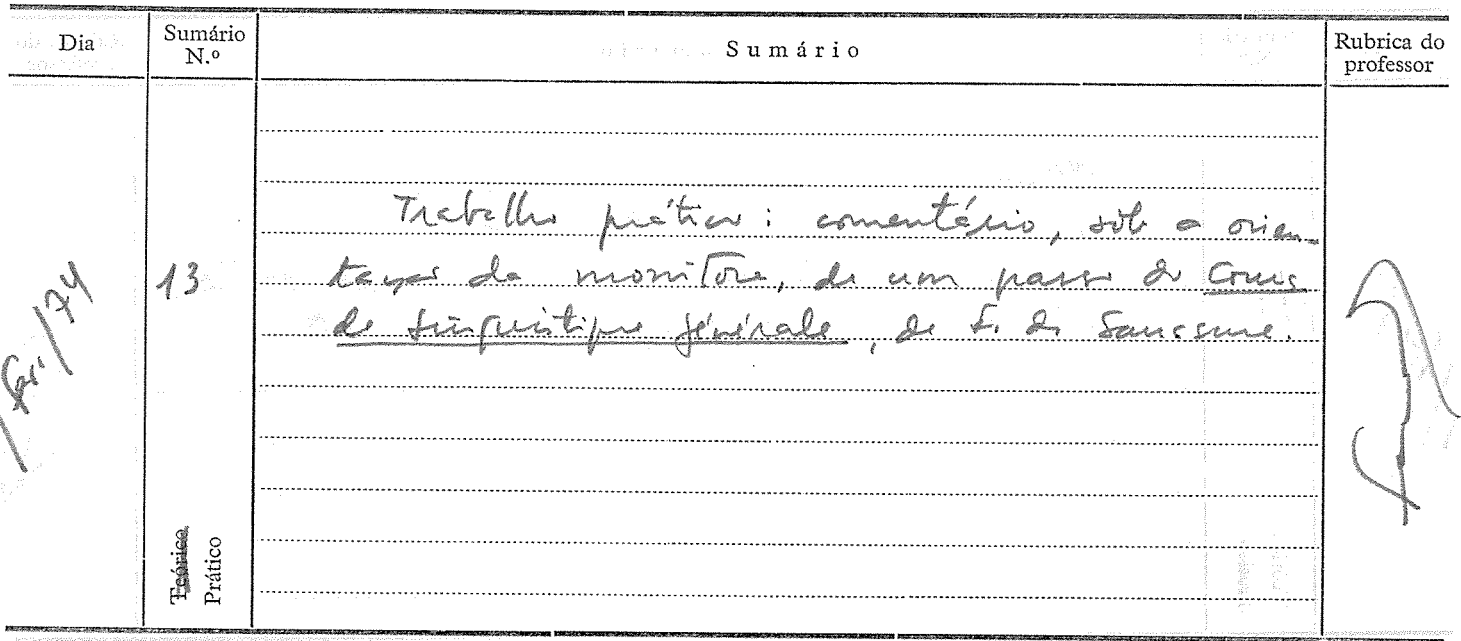 Dia
Sumário N.º
Sumário
Rubrica do professor
/ fev./74
13
Trabalho prático: comentário, sob a orien-
tação da monitora, de um passo do Cours
de linguistique générale, de F. de Saussure.
Teórico
Prático